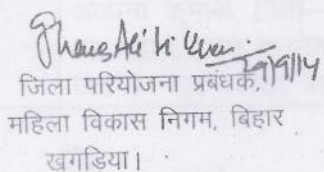 29/9/14
जिला परियोजना प्रबंधक,
महिला विकास निगम, बिहार
खगडिया।